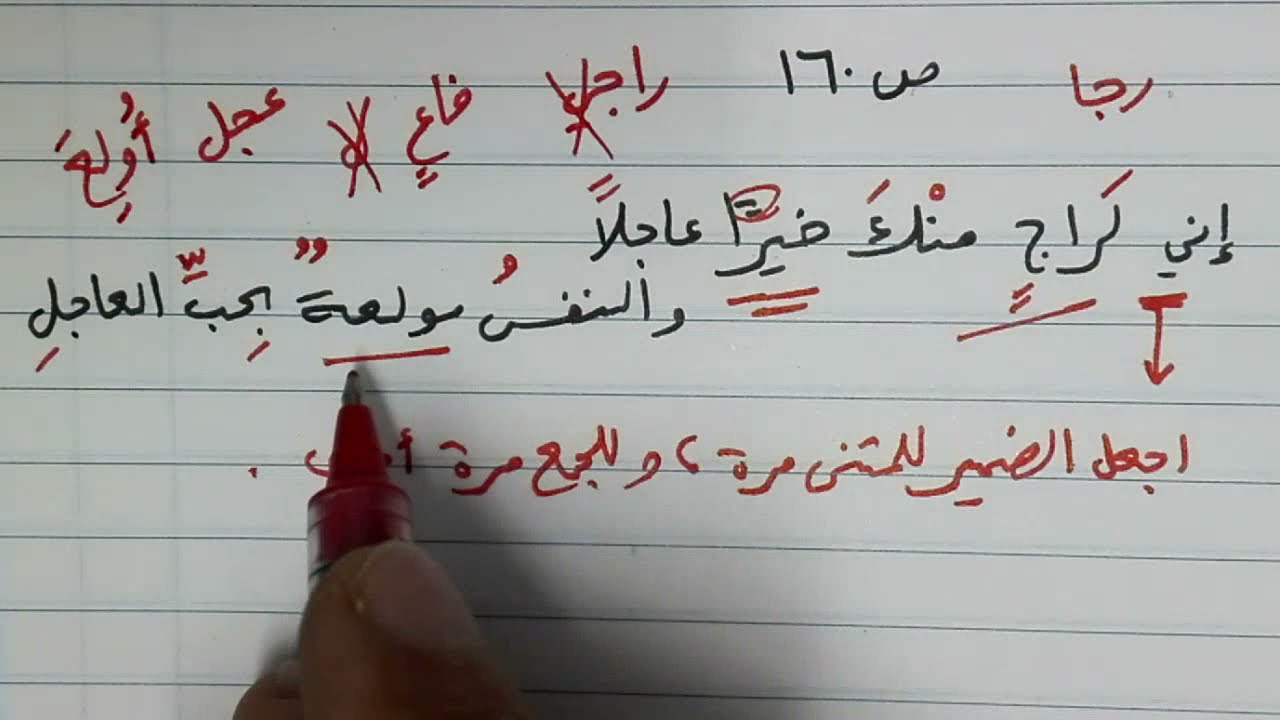 رجا ص ١٦٠ راجل فاعٍ لا عجل أُولِعَ
إني كَراجٍ منْكَ خيرًا عاجلاً
والنفسُ مولعةٌ بِحبِّ العاجلِ
اجعل الضمير للمثنى مرة ، وللجمع مرة